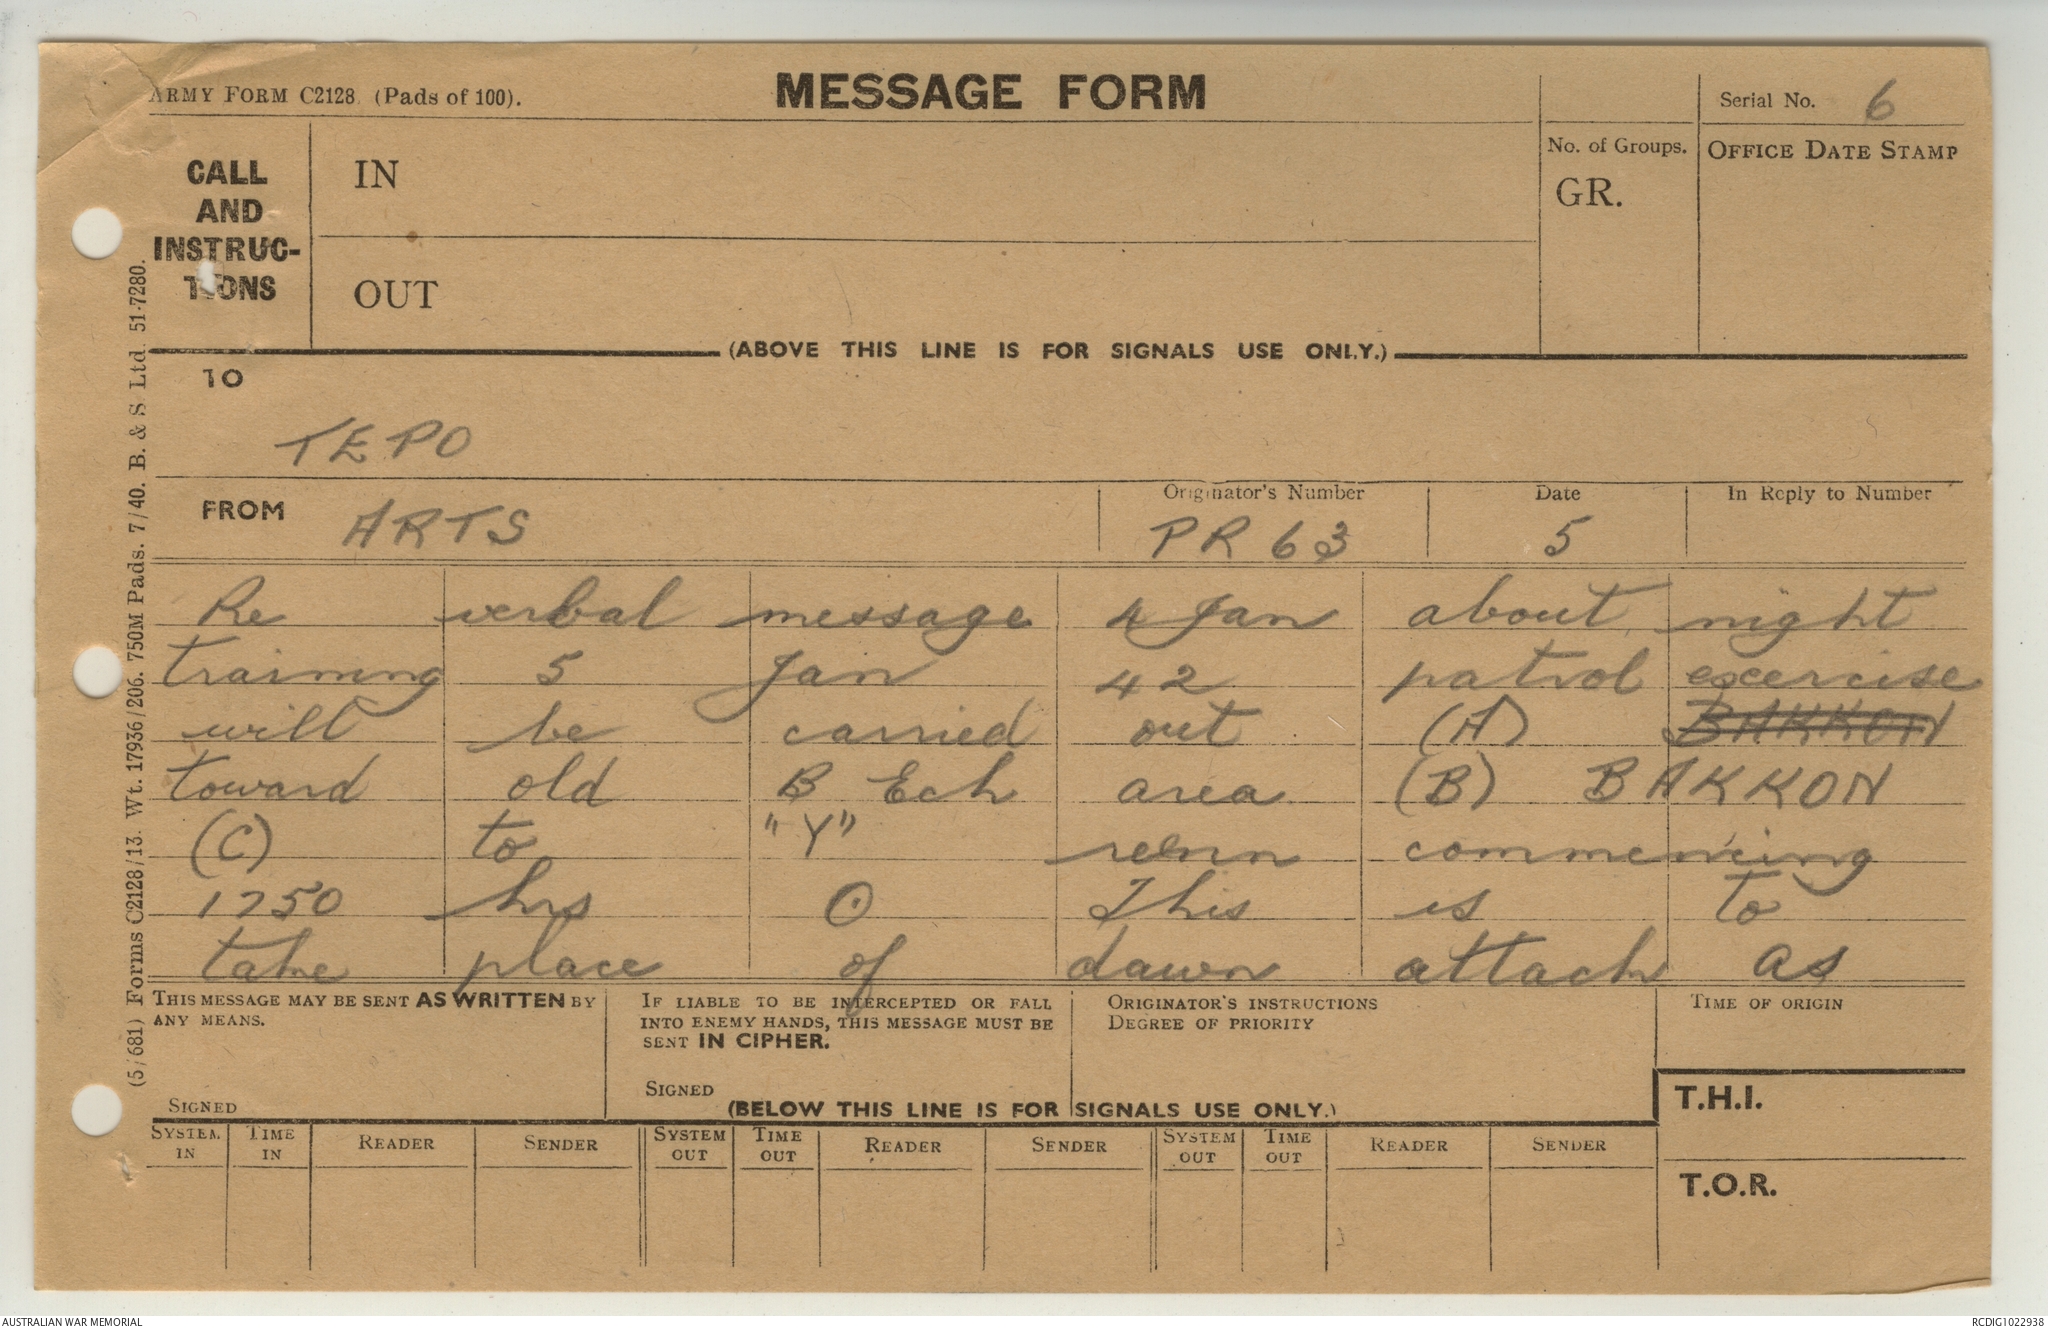 ARMY FORM C2128. (Pads of 100).
MESSAGE FORM
Serial No. 6
CALL AND INSTRUC-TIONS
IN
OUT
No. of Groups.
GR.
OFFICE DATE STAMP
(ABOVE THIS LINE IS FOR SIGNALS USE ONLY.)
TO
TEPO
FROM ARTS
Originator's Number
PR 63
Date
5
In Reply to Number
Re verbal message 4 Jan about night
training 5 Jan 42 patrol excercise
will be carried out (A) BAKKON
toward old B Ech area (B) BAKKON
(C) to "Y" commencing
1750 hrs ⊙ This is to
take place of dawn attack as
THIS MESSAGE MAY BE SENT AS WRITTEN BY
ANY MEANS.
SIGNED
IF LIABLE TO BE INTERCEPTED OR FALL
INTO ENEMY HANDS, THIS MESSAGE MUST BE
SENT IN CIPHER.
SIGNED
ORIGINATOR'S INSTRUCTIONS
DEGREE OF PRIORITY
TIME OF ORIGIN
(BELOW THIS LINE IS FOR SIGNALS USE ONLY.)
T.H.I.
SYSTEM IN
TIME IN
READER
SENDER
SYSTEM OUT
TIME OUT
READER
SENDER
SYSTEM OUT
TIME OUT
READER
SENDER
T.O.R.
(5/681) Forms C2128/13. Wt. 17936/206. 750M Pads. 7/40. B. & S. Ltd. 51-7280.
AUSTRALIAN WAR MEMORIAL
RCDIG1022938